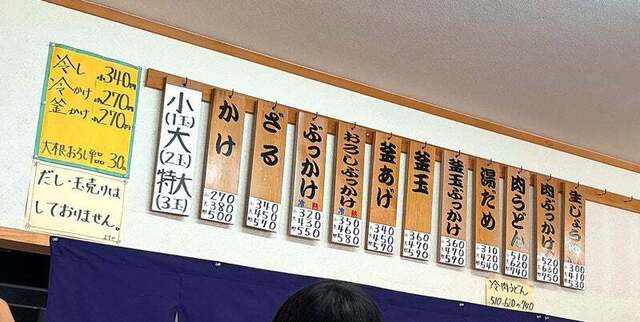 冷し 小340円
冷かけ 小270円
釜かけ 小270円
大根おろし単品 30円
だし・玉売りは
しておりません。
小(1玉)
大(2玉)
特大(3玉)
かけ
270
380
500
ざる
340
450
570
ぶっかけ
冷
320
430
550
熱
おろしぶっかけ
冷
350
460
580
熱
釜あげ
340
450
570
釜玉
360
470
590
釜玉ぶっかけ
360
470
590
湯だめ
310
420
540
肉うどん
510
620
740
肉ぶっかけ
520
630
750
生じょうゆ
300
410
530
冷肉うどん
510・620・740